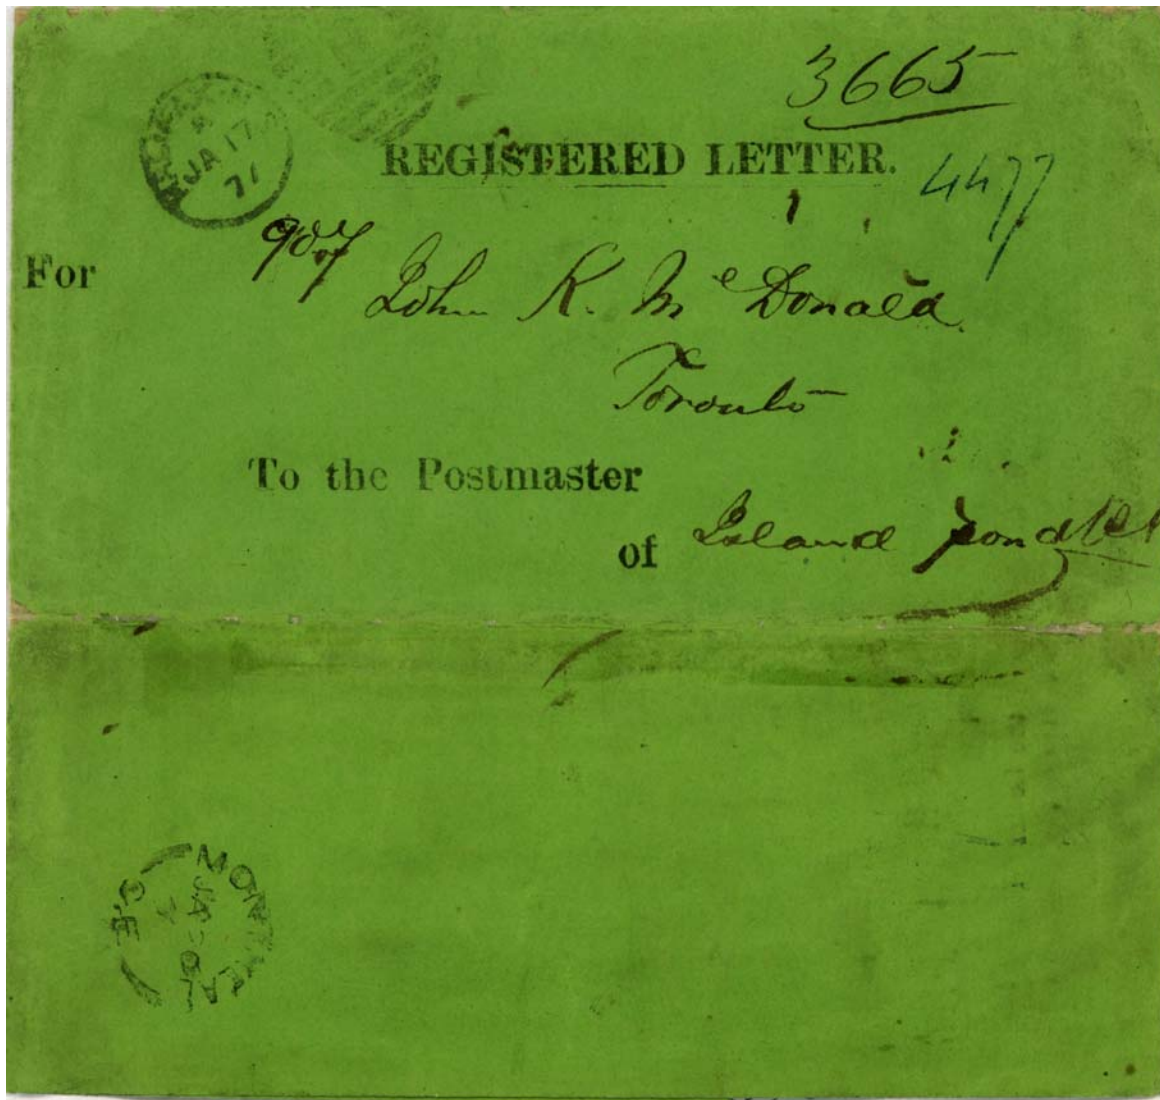 3665
JA 17
71
REGISTERED LETTER.
4477
For
907
John K. Mc Donald
Toronto
To the Postmaster
of Island pond Vt
MONTREAL
JA